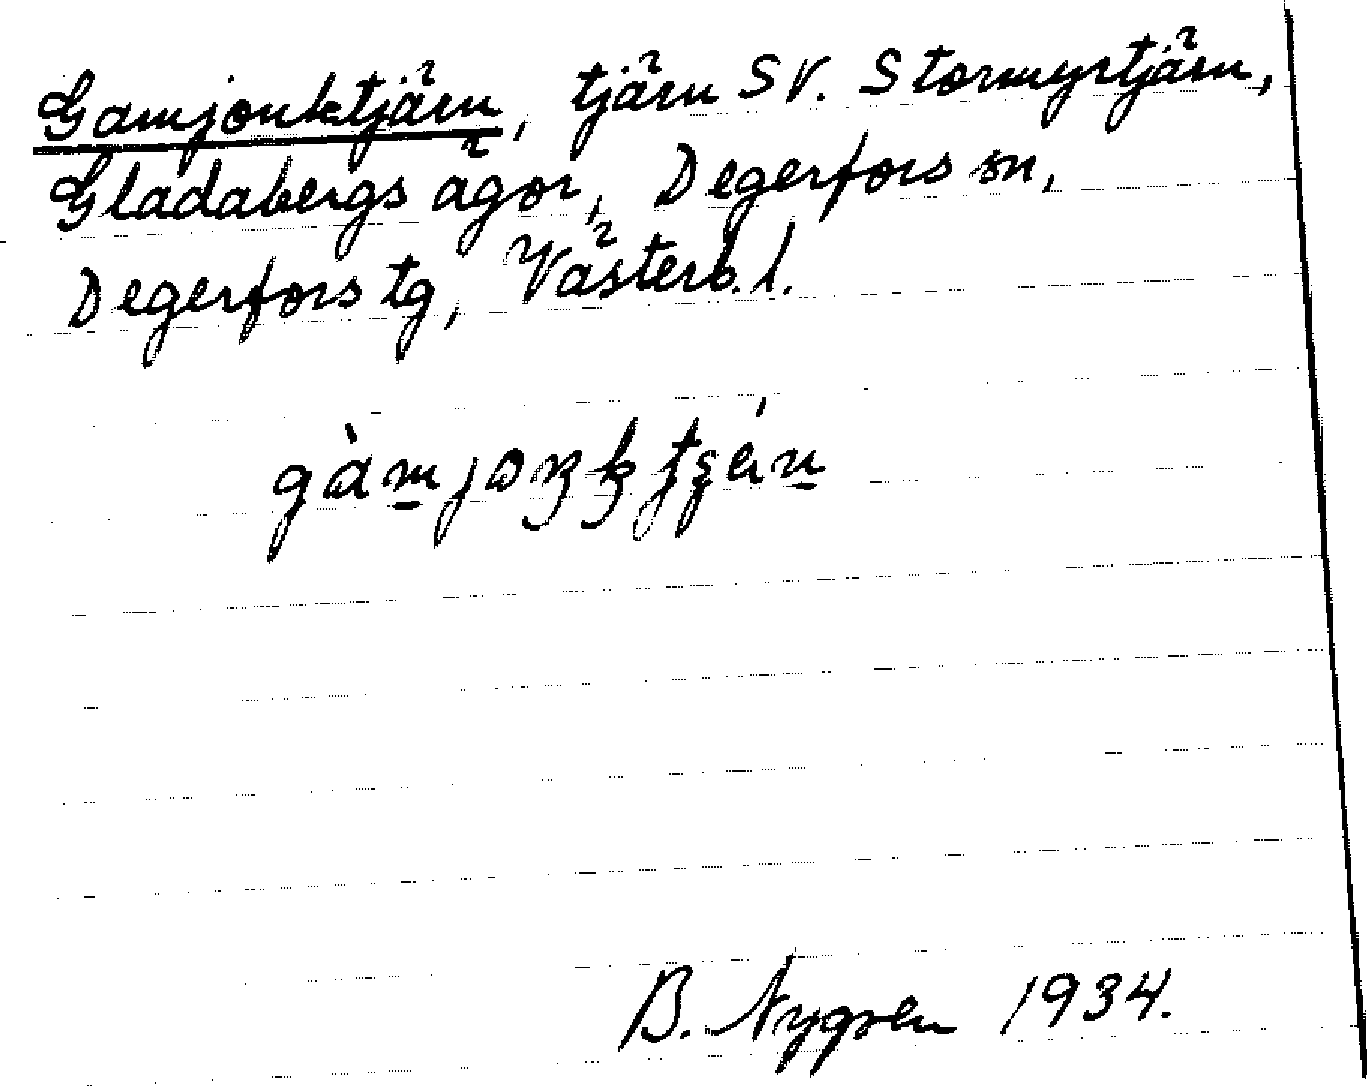 Gamjonktjärn, tjärn SV. Stormyrtjärn,
Gladabergs ägor, Degerfors sn,
Degerfors tg, Västerb. l.
B. Nygren 1934.